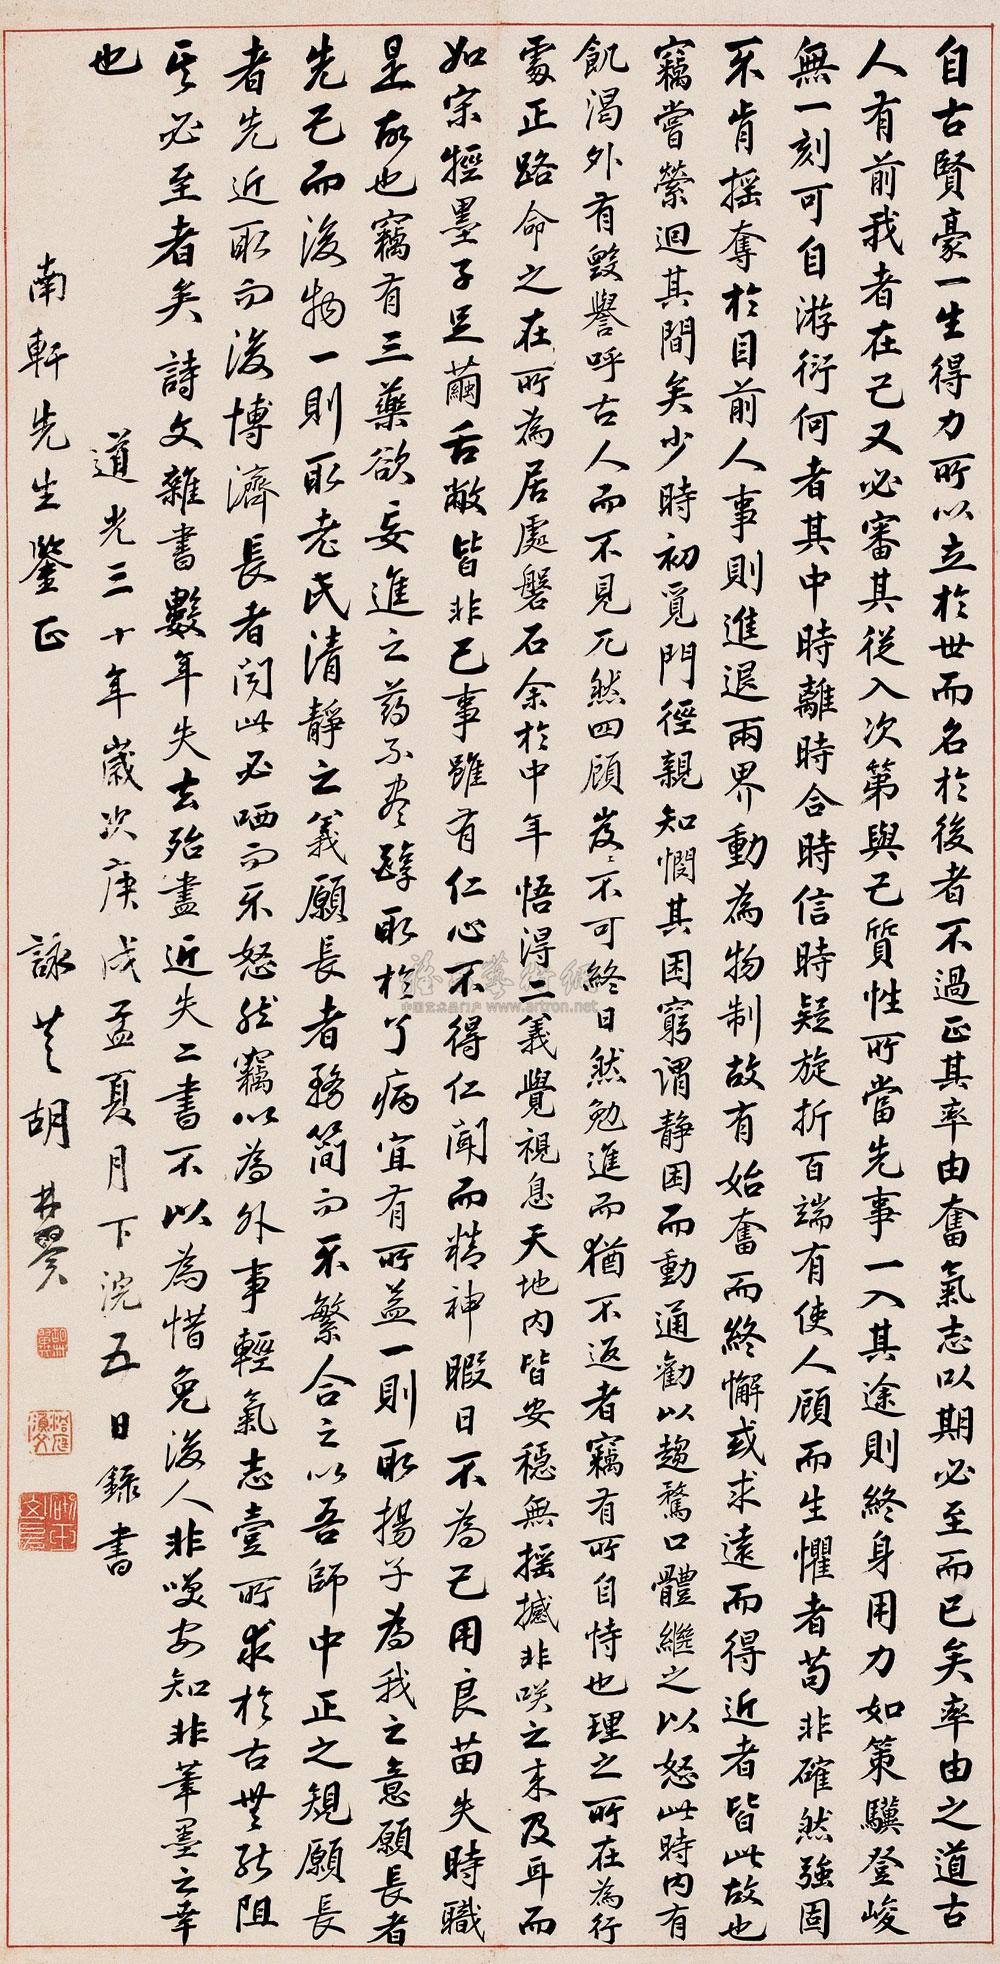 自古賢豪一生得力所以立於世而名於後者不過正其率由奮氣志以期必至而已矣率由之道古
人有前我者在己又必審其從入次第與己質性所當先事一入其途則終身用力如策驥登峻
無一刻可自游衍何者其中時離時合時信時疑旋折百端有使人顧而生懼者苟非確然強固
不肯搖奪於目前人事則進退兩界動為物制故有始奮而終懈或求遠而得近者皆此故也
竊嘗縈迴其間矣少時初覓門徑親知憫其困窮謂靜困而動通勸以趨騖口體繼之以怒此時內有
飢渴外有毀譽呼古人而不見兀然四顧岌岌不可終日然勉進而猶不返者竊有所自恃也理之所在為行
處正路命之在所為居處磐石余於中年悟得二義覺視息天地內皆安穩無搖撼非咲之來及耳而
如宗牼墨子足繭舌敝皆非己事雖有仁心不得仁聞而精神暇日不為己用良苗失時職
是故也竊有三藥欲妄進之藥不盡醇取於了病宜有所益一則取揚子為我之意願長者
先己而後物一則取老氏清靜之義願長者務簡而不繁合之以吾師中正之規願長
者先近取而後博濟長者閱此必哂而不怒然竊以為外事輕氣志壹所求於古無能阻
其必至者矣詩文雜書數年失去殆盡近失二書不以為惜免後人非嘆安知非筆墨之幸
也
道光三十年歲次庚戌孟夏月下浣五日錄書
南軒先生鑒正
詠芝胡林翼
中国艺术品门户 www.artron.net